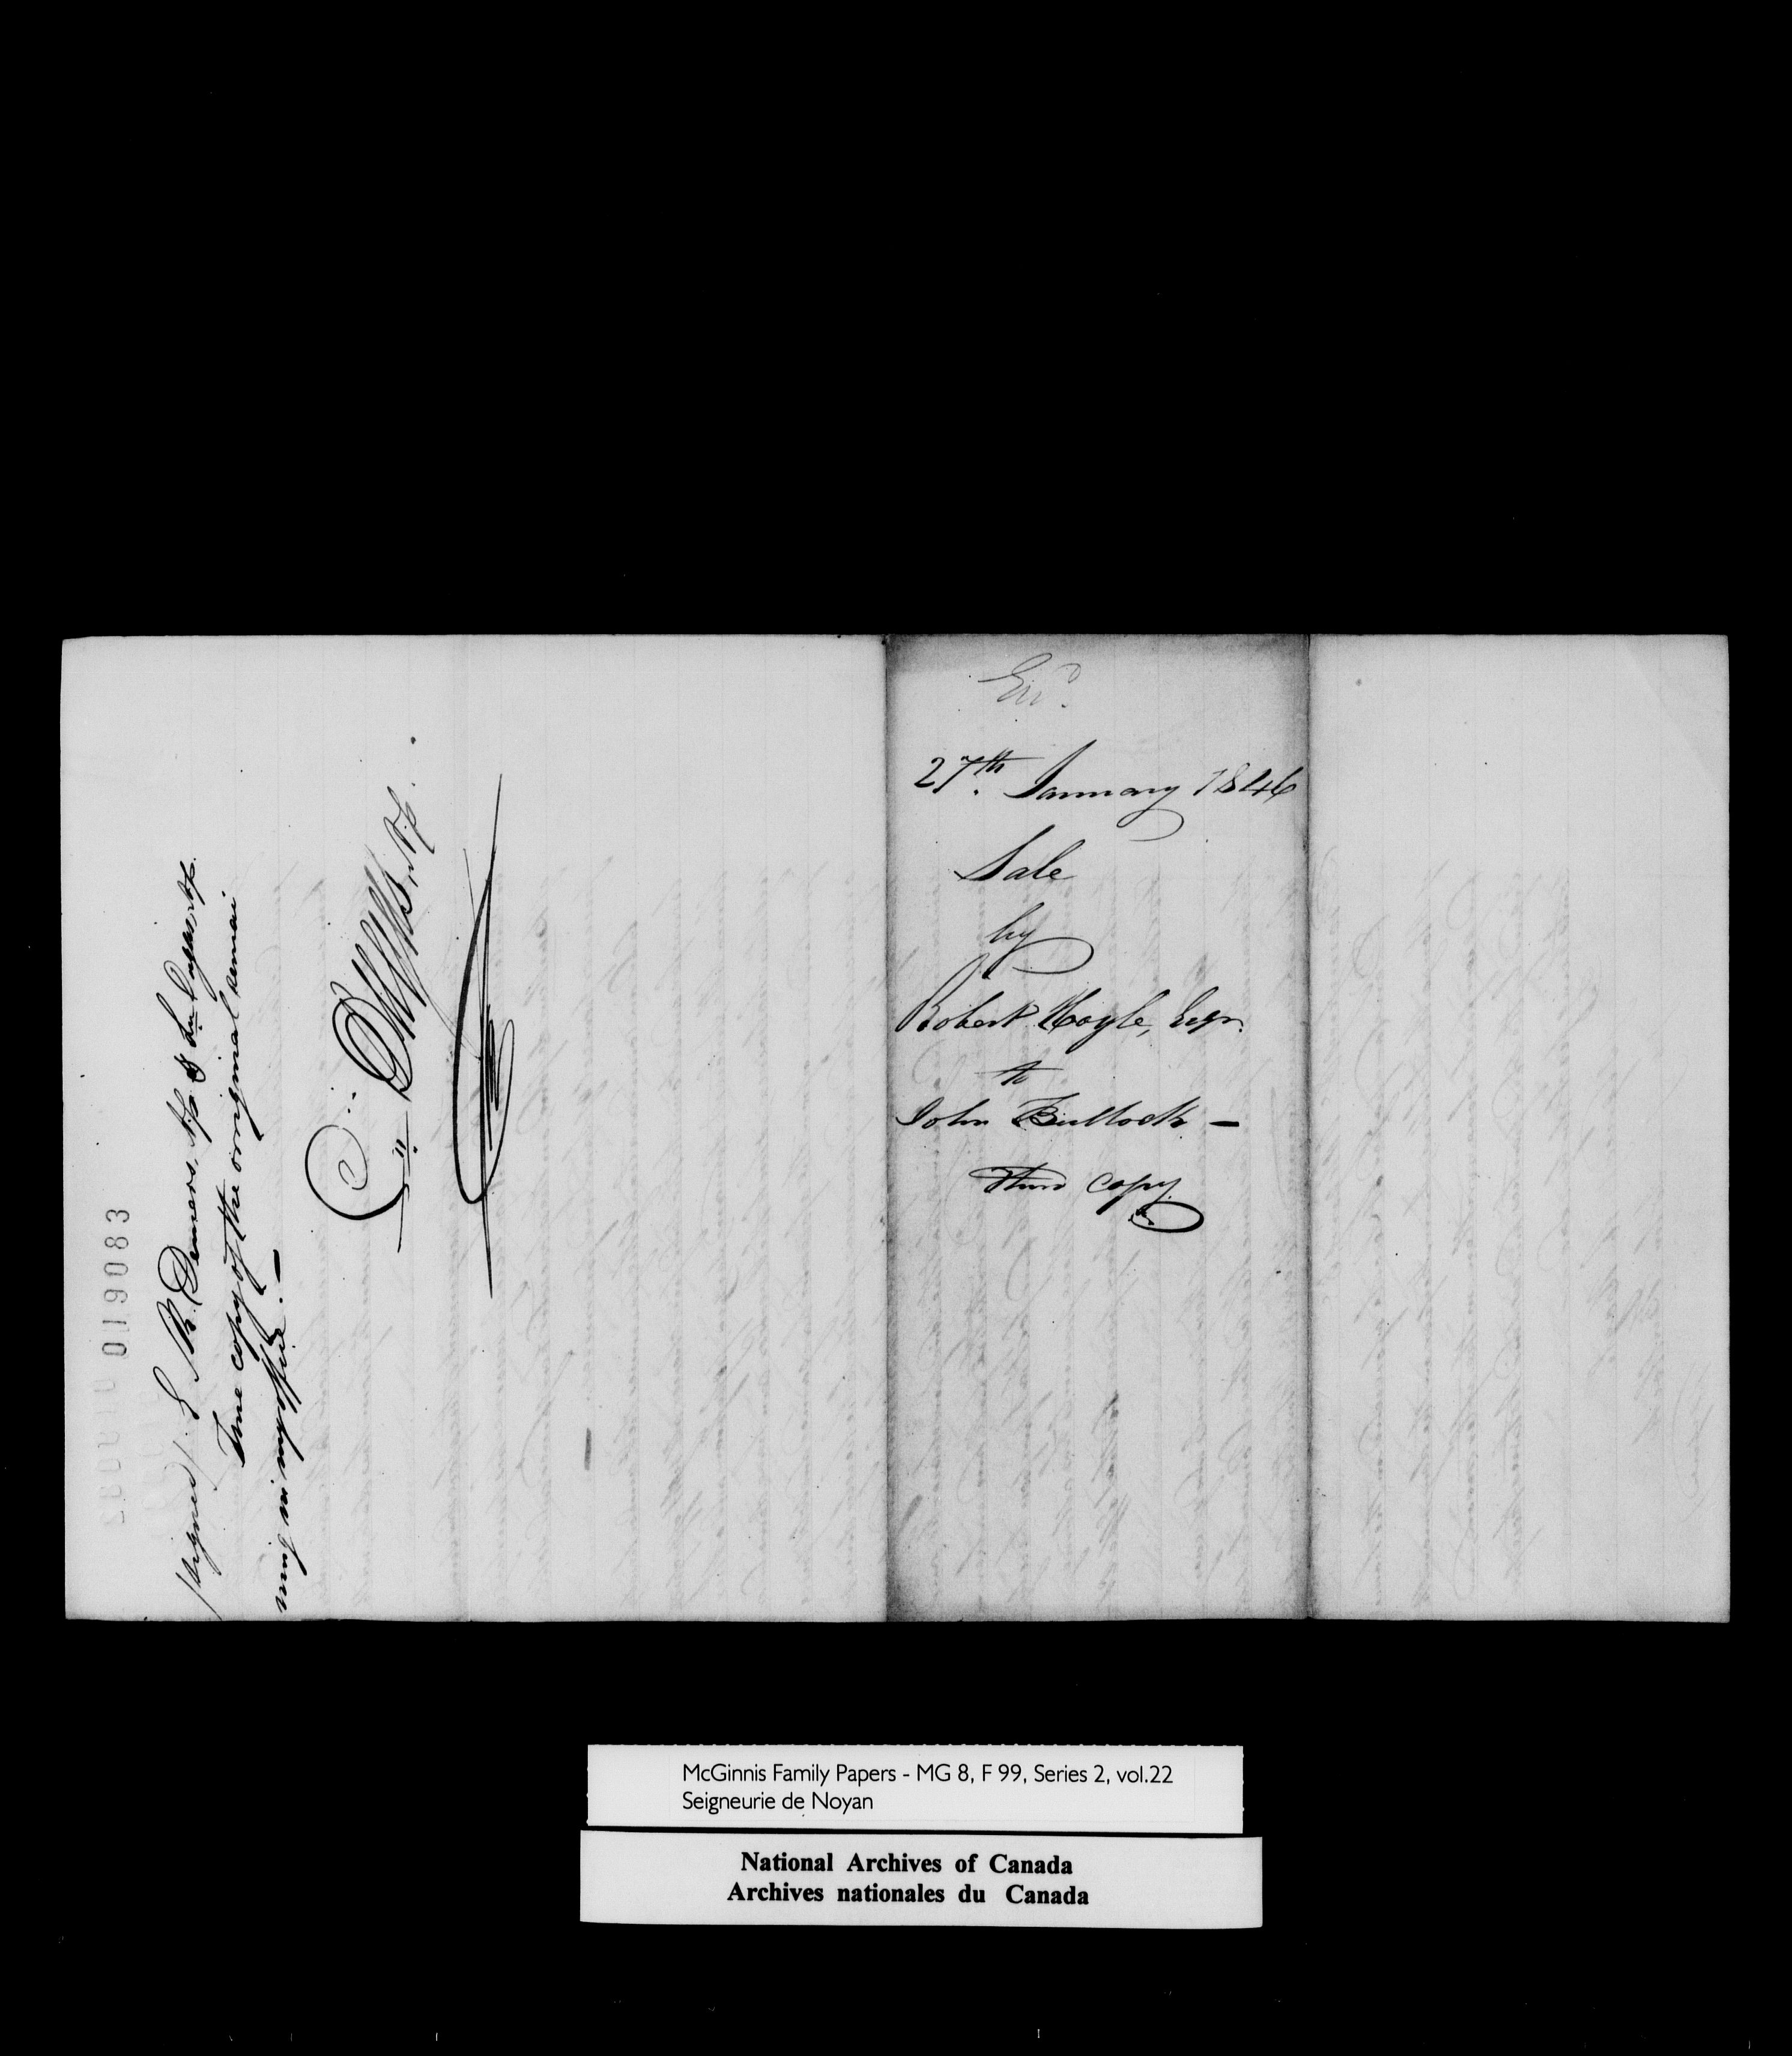 019083
(signed) E. R. Demers, N.P. & Ln Dugas, N.P.
True copy of the original remai
ning in my office. —
N.P.
27th. January 1846
Sale
by
Robert Hoyle, Esqr.
to
John Bullock —
Third copy
McGinnis Family Papers - MG 8, F 99, Series 2, vol.22
Seigneurie de Noyan
National Archives of Canada
Archives nationales du Canada